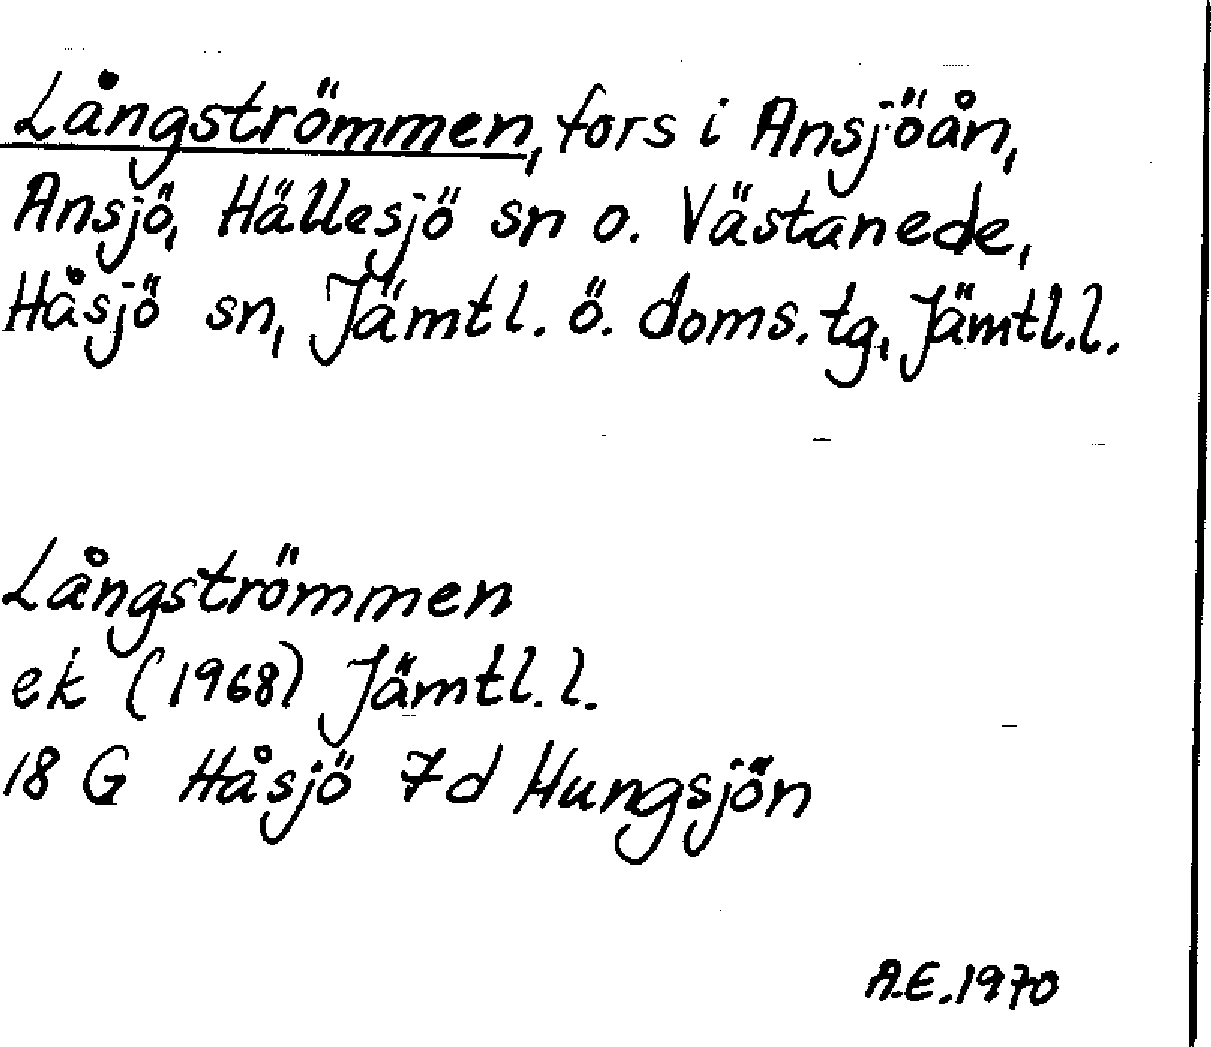 Långströmmen, fors i Ansjöån,
Ansjö, Hällesjö sn o. Västanede,
Håsjö sn, Jämtl. ö. doms. tg, Jämtl.l.
Långströmmen
ek (1968) Jämtl.l.
18 G Håsjö 7d Hungsjön
A.E.1970